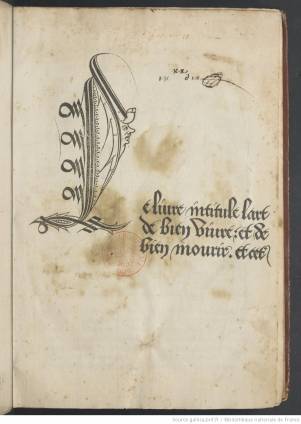 Le liure intitule lart
de bien viure: et de
bien mourir. et cet
Source gallica.bnf.fr / Bibliothèque nationale de France